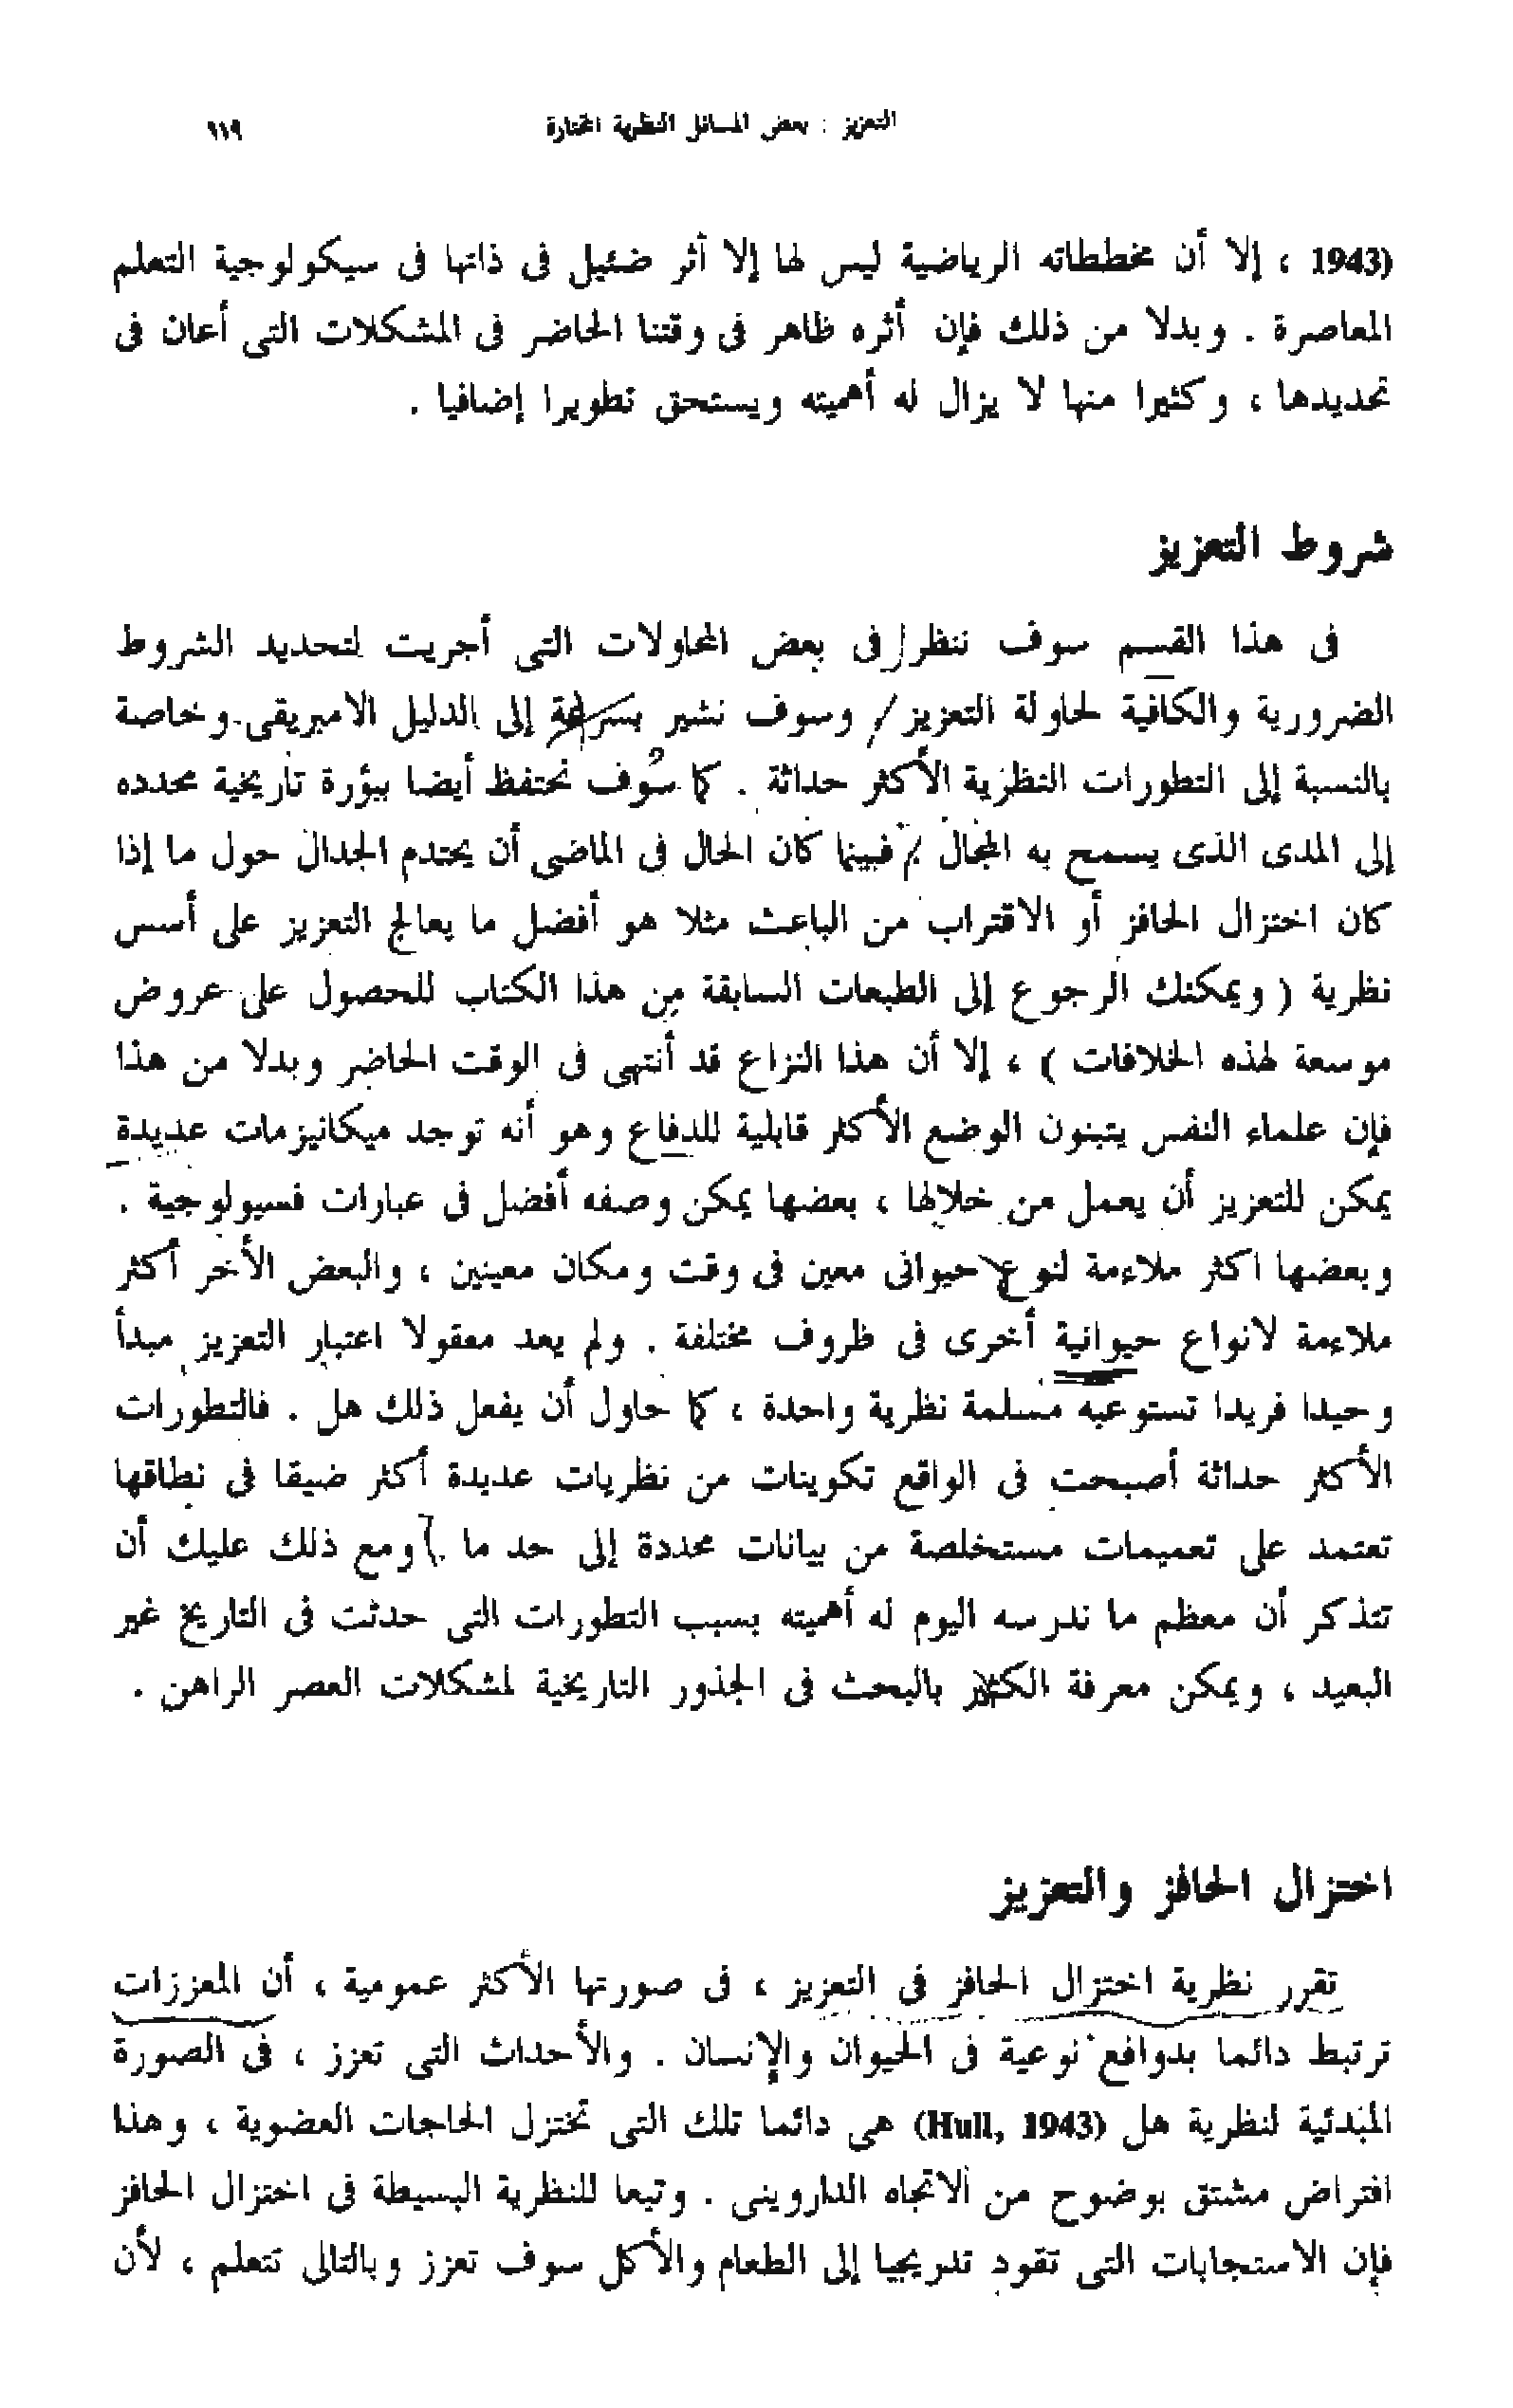 التعزيز : بعض المسائل النظرية المختارة ١١٩
(1943 ، إلا أن مخططاته الرياضية ليس لها إلا أثر ضئيل فى ذاتها فى سيكولوجية التعلم
المعاصرة . وبدلا من ذلك فإن أثره ظاهر فى وقتنا الحاضر فى المشكلات التى أعان فى
تحديدها ، وكثيرا منها لا يزال له أهميته ويستحق تطويرا إضافيا .
شروط التعزيز
فى هذا القسم سوف ننظر فى بعض المحاولات التى أجريت لتحديد الشروط
الضرورية والكافية لحاولة التعزيز وسوف نشير بسراعة إلى الدليل الامبريقى وخاصة
بالنسبة إلى التطورات النظرية الأكثر حداثة . كما سوف نحتفظ أيضا ببؤرة تاريخية محدده
إلى المدى الذى يسمح به المجال . فبينما كان الحال فى الماضى أن يحتدم الجدال حول ما إذا
كان اختزال الحافز أو الاقتراب من الباعث مثلا هو أفضل ما يعالج التعزيز على أسس
نظرية ( ويمكنك الرجوع إلى الطبعات السابقة من هذا الكتاب للحصول على عروض
موسعة لهذه الخلافات ) ، إلا أن هذا النزاع قد أنتهى فى الوقت الحاضر وبدلا من هذا
فإن علماء النفس يتبنون الوضع الأكثر قابلية للدفاع وهو أنه توجد ميكانيزمات عديدة
يمكن للتعزيز أن يعمل من خلالها ، بعضها يمكن وصفه أفضل فى عبارات فسيولوجية .
وبعضها اكثر ملاءمة لنوع حيوانى معين فى وقت ومكان معينين ، والبعض الأخر أكثر
ملاءمة لانواع حيوانية أخرى فى ظروف مختلفة . ولم يعد معقولا اعتبار التعزيز مبدأ
وحيدا فريدا تستوعبه مسلمة نظرية واحدة ، كما حاول أن يفعل ذلك هل . فالتطورات
الأكثر حداثة أصبحت فى الواقع تكوينات من نظريات عديدة أكثر ضيقا فى نطاقها
تعتمد على تعميمات مستخلصة من بيانات محددة إلى حد ما . ومع ذلك عليك أن
تتذكر أن معظم ما ندرسه اليوم له أهميته بسبب التطورات التى حدثت فى التاريخ غير
البعيد ، ويمكن معرفة الكثير بالبحث فى الجذور التاريخية لمشكلات العصر الراهن .
اختزال الحافز والتعزيز
تقرر نظرية اختزال الحافز فى التعزيز ، فى صورتها الأكثر عمومية ، أن المعززات
ترتبط دائما بدوافع نوعية فى الحيوان والإنسان . والأحداث التى تعزز ، فى الصورة
المبدئية لنظرية هل (Hull, 1943) هى دائما تلك التى تختزل الحاجات العضوية ، وهذا
افتراض مشتق بوضوح من الاتجاه الداروينى . وتبعا للنظرية البسيطة فى اختزال الحافز
فإن الاستجابات التى تقود تدريجيا إلى الطعام والأكل سوف تعزز وبالتالى تتعلم ، لأن